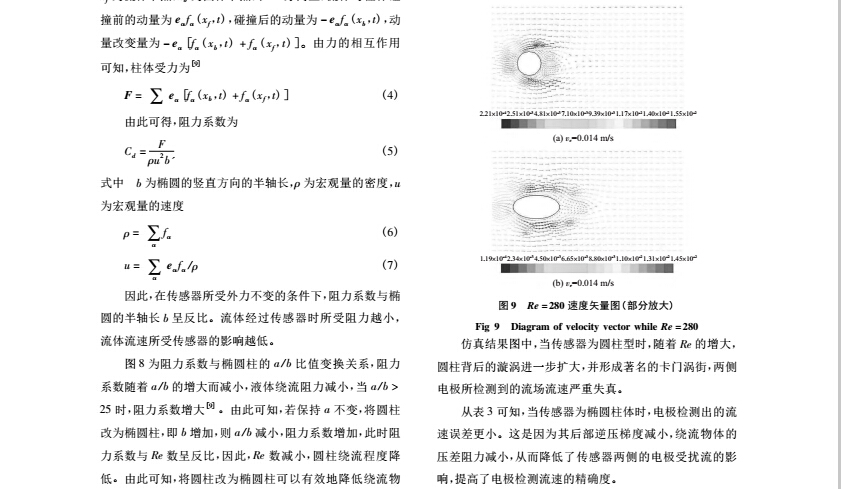 撞前的动量为 eαfα(xf,t),碰撞后的动量为 -eαfα(xb,t),动
量改变量为 -eα [fα(xb,t) +fα(xf,t)]。由力的相互作用
可知,柱体受力为[9]
F = ∑ eα [fα(xb,t) +fα(xf,t)] (4)
由此可得,阻力系数为
Cd = F / ρu²b, (5)
式中 b 为椭圆的竖直方向的半轴长,ρ 为宏观量的密度,u
为宏观量的速度
ρ = ∑α fα (6)
u = ∑α eαfα/ρ (7)
因此,在传感器所受外力不变的条件下,阻力系数与椭
圆的半轴长 b 呈反比。流体经过传感器时所受阻力越小,
流体流速所受传感器的影响越低。
图 8 为阻力系数与椭圆柱的 a/b 比值变换关系,阻力
系数随着 a/b 的增大而减小,液体绕流阻力减小,当 a/b >
25 时,阻力系数增大[9]。由此可知,若保持 a 不变,将圆柱
改为椭圆柱,即 b 增加,则 a/b 减小,阻力系数增加,此时阻
力系数与 Re 数呈反比,因此,Re 数减小,圆柱绕流程度降
低。由此可知,将圆柱改为椭圆柱可以有效地降低绕流物
(a) v =0.014 m/s
(b) v =0.014 m/s
图 9 Re =280 速度矢量图(部分放大)
Fig 9 Diagram of velocity vector while Re =280
仿真结果图中,当传感器为圆柱型时,随着 Re 的增大,
圆柱背后的漩涡进一步扩大,并形成著名的卡门涡街,两侧
电极所检测到的流场流速严重失真。
从表 3 可知,当传感器为椭圆柱体时,电极检测出的流
速误差更小。这是因为其后部逆压梯度减小,绕流物体的
压差阻力减小,从而降低了传感器两侧的电极受扰流的影
响,提高了电极检测流速的精确度。